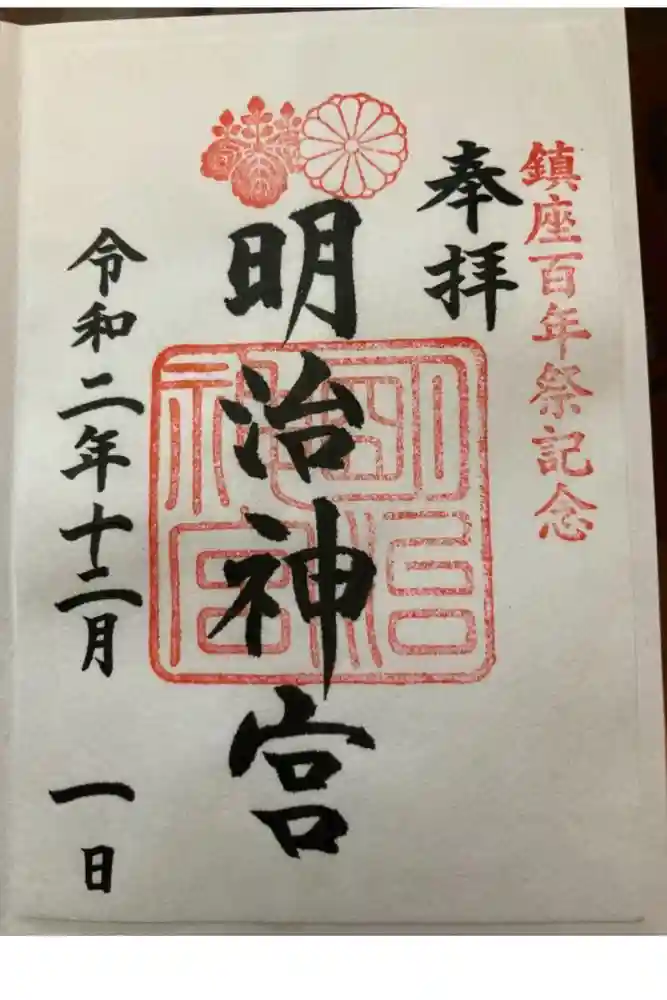 鎮座百年祭記念
奉拝
明治神宮
明治神宮
令和二年十二月 一日